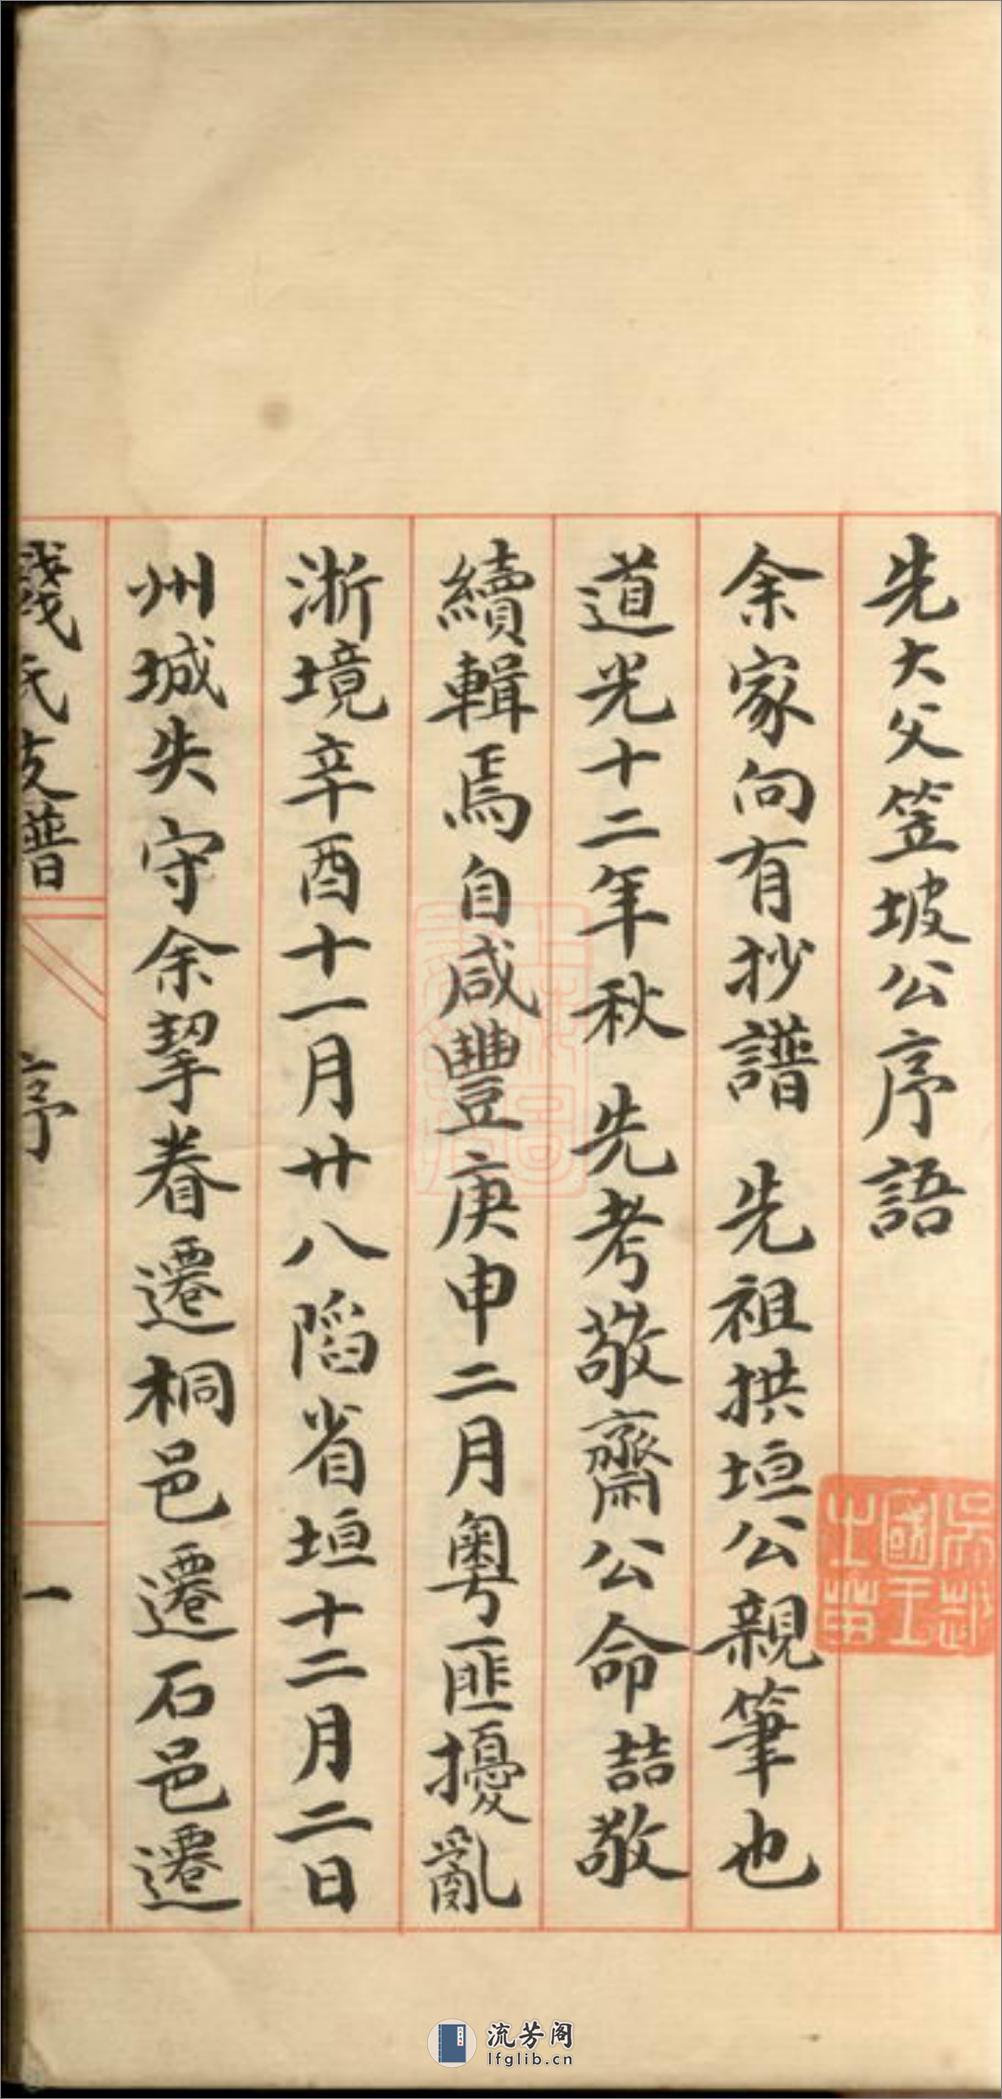 先大父笠坡公序語
余家向有抄譜 先祖拱垣公親筆也
道光十二年秋 先考敬齋公命喆敬
續輯焉自咸豐庚申二月粵匪擾亂
浙境辛酉十一月廿八陷省垣十二月二日
州城失守余挈眷遷桐邑遷石邑遷
錢氏支譜
序
一
吳越國王之苗
流芳阁
lfglib.cn